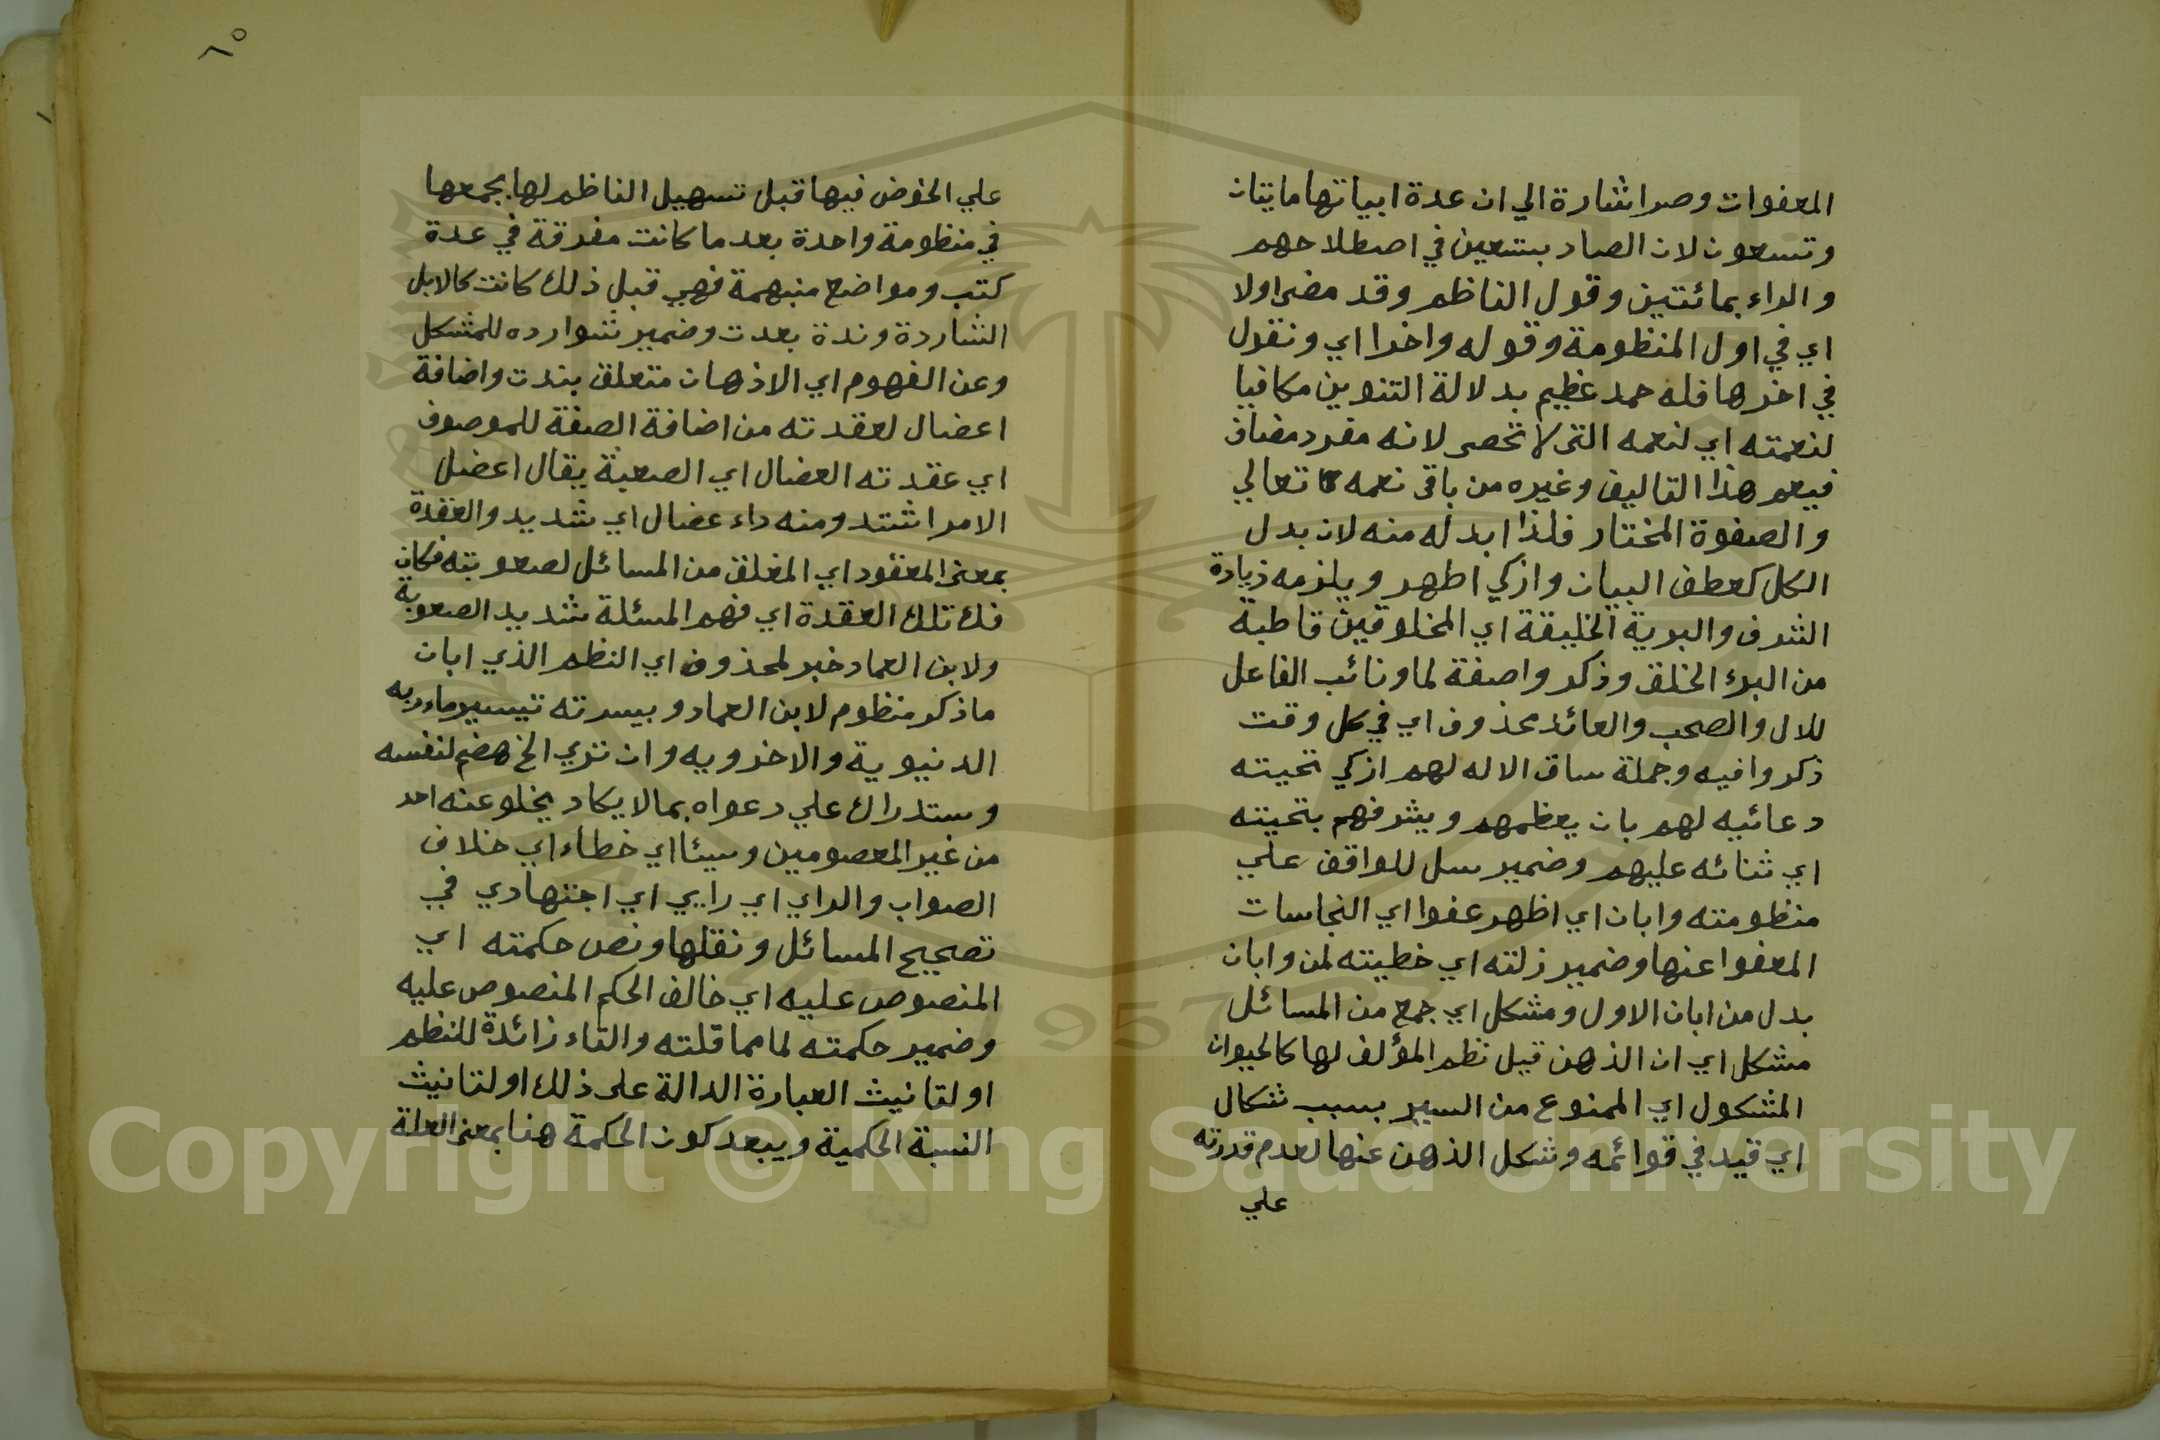 المعفوات وصر اشارة الي ان عدة ابياتها مايتان
وتسعون لان الصاد بتسعين في اصطلاحهم
والراء بمائتين وقول الناظم وقد مضى اولا
اي في اول المنظومة وقوله واخرا اي ونقول
في اخرها فله حمد عظيم بدلالة التنوين مكافيا
لنعمته اي لنعمه التي لا تحصر لانه مفرد مضاف
فيعم هذا التاليف وغيره من باقي نعمه تعالي
والصفوة المختار فلذا ابدله منه لان بدل
الكل كعطف البيان وازكي اطهر ويلزمه زيادة
الشرف والبرية الخليقة اي المخلوقين قاطبة
من البرء الخلق وذكر واصفة لما ونائب الفاعل
للال والصحب والعائد محذوف اي في كل وقت
ذكروا فيه وجملة ساق الاله لهم ازكي تحيته
دعائيه لهم بان يعظمهم ويشرفهم بتحيته
اي ثنائه عليهم وضمير سل للواقف علي
منظومته وابان اي اظهر عفوا اي النجاسات
المعفوا عنها وضمير زلته اي خطيته لمن وابان
بدل من ابان الاول ومشكل اي جمع من المسائل
مشكل اي ان الذهن قبل نظم المؤلف لها كالحيوان
المشكول اي الممنوع من السير بسبب شكال
اي قيد في قوائمه وشكل الذهن عنها لعدم قدرته
علي
٦٥
علي الخوض فيها قبل تسهيل الناظم لها بجمعها
في منظومة واحدة بعد ما كانت مفرقة في عدة
كتب ومواضع منبهمة فهي قبل ذلك كانت كالابل
الشاردة وندة بعدت وضمير شوارده للمشكل
وعن الفهوم اي الاذهان متعلق بندت واضافة
اعضال لعقدته من اضافة الصفة للموصوف
اي عقدته العضال اي الصعبة يقال اعضل
الامر اشتد ومنه داء عضال اي شديد والعقدة
بمعنى المعقود اي المغلق من المسائل لصعوبته فكان
فك تلك العقدة اي فهم المسئلة شديد الصعوبة
ولابن العماد خبر لمحذوف اي النظم الذي ابان
ما ذكر منظوم لابن العماد وبيسرته تيسير ماربه
الدنيوية والاخرويه وان تري الخ هضم لنفسه
وستدراك علي دعواه بما لا يكاد يخلو عنه احد
من غير المعصومين وسيئا اي خطاء اي خلاف
الصواب والراي اي رايي اي اجتهادي في
تصحيح المسائل ونقلها ونص حكمته اي
المنصوص عليه اي خالف الحكم المنصوص عليه
وضمير حكمته لما مما قلته والتاء زائدة للنظم
او لتانيث العبارة الدالة على ذلك او لتانيث
النسبة الحكمية ويبعد كون الحكمة هنا بمعنى العلة
Copyright © King Saud University